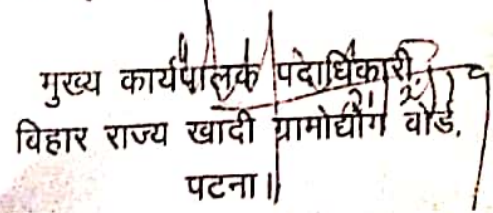 मुख्य कार्यपालक पदाधिकारी,
विहार राज्य खादी ग्रामोद्योग वोर्ड,
पटना।